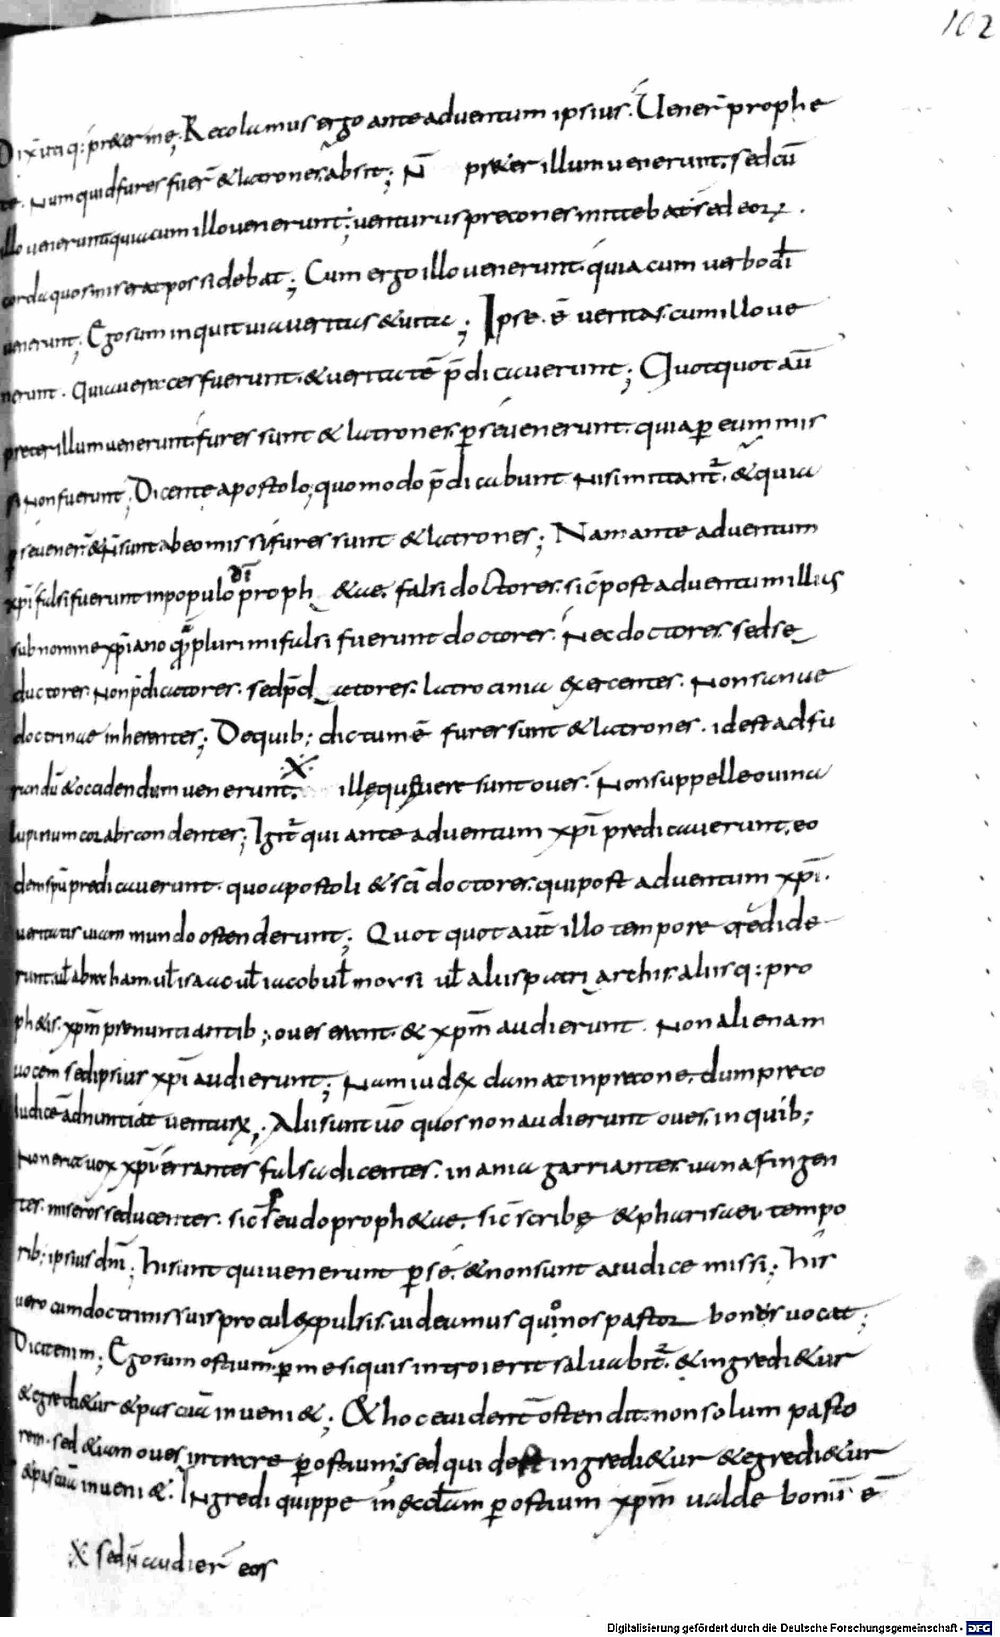 102
Dix utiq: preter me; Recolamus ergo ante adventum ipsius. Uener̄ prophe
te. Numquid fures fuer̄ & latrones absit; N̄ preter illum uenerunt. sed cū
illo uenerunt quia cum illo uenerunt; uenturus precones mittebat sed eoꝝ.
corda quos miserat possidebat; Cum ergo illo uenerunt. quia cum uerbo dī
uenerunt; Ego sum inquit uia ueritas & uita; Ipse ē ueritas. cum illo ue
nerunt. Quia ueraces fuerunt. & ueritatē p̄dicauerunt; Quotquot aū
preter illum uenerunt. fures sunt & latrones. ꝑ se uenerunt. quia ꝑ eum mis
si non fuerunt; Dicente apostolo; quomodo p̄dicabunt nisi mittant᷑. & quia
ꝑ se uener̄ & n̄ sunt ab eo missi fures sunt & latrones; Nam ante adventum
xp̄i falsi fuerunt in populo dī proph&ae. falsi doctores. sic̄ post adventum illius
sub nomine xp̄iano quoq; plurimi falsi fuerunt doctores. Nec doctores. sed se
ductores. Non p̄dicatores. sed p̄datores. latrocinia exercentes. Non sanae
doctrinae inherentes; De quib; dictum ē fures sunt & latrones. id est ad fu
randū & occidendum uenerunt. X illę quę fuere sunt oues. Non sub pelle ouina
lupinum cor abscondentes; Igit᷑ qui ante adventum xp̄i predicauerunt. eo
dem sp̄u predicauerunt. quo apostoli & sc̄i doctores. qui post adventum xp̄i.
ueritatis uiam mundo ostenderunt; Quotquot aūt illo tempore credide
runt. ul̄ abraham. ul̄ isaac ul̄ iacob ul̄ moysi ul̄ aliis patriarchis. aliisq: pro
ph&is. xp̄m prenuntiantib; oues erant. & xp̄m audierunt. Non alienam
uocem sed ipsius xp̄i audierunt; Nam iudex clamat in precone. dum preco
Iudicē adnuntiat uenturū; Alii sunt uō quos non audierunt oues. in quib;
Non erat uox xp̄i errantes falsa dicentes. inania garriantes. uana fingen
tes. miseros seducentes. sic̄ pseudoproph&ae. sic̄ scribę & pharisaei tempo
rib; ipsius dn̄i; Hi sunt qui uenerunt ꝑ se. & non sunt a iudice missi; his
uero cum doctrinis suis procul expulsis. uideamus quo nos pastor bonus uocat;
Dicit enim; Ego sum ostium. ꝑ me si quis introierit saluabit᷑. & ingredi&ur
& egredi&ur & pascuā inueni&; & hoc euident̄ ostendit. non solum pasto
rem. sed &iam oues intrare ꝑ ostium; sed quid est ingredi&ur & egredi&ur
& pascuā inueni&. Ingredi quippe in eccl̄am ꝑ ostium xp̄m ualde bonū ē
X sed n̄ audier̄ eos
Digitalisierung gefördert durch die Deutsche Forschungsgemeinschaft - DFG